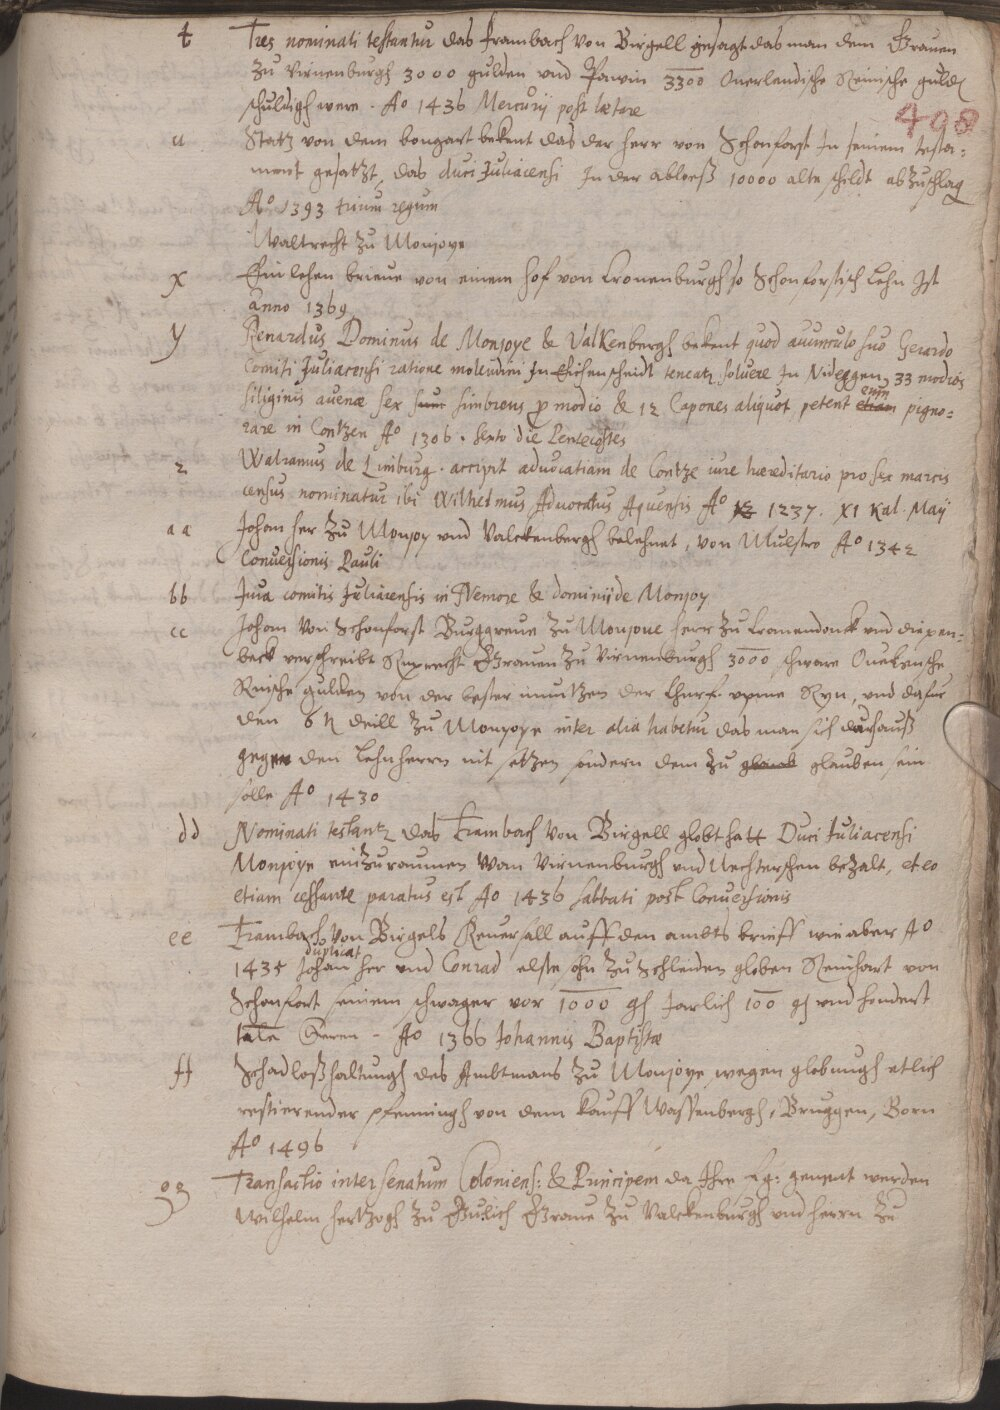 t Tres nominati testantur das Frambach von Birgell gesagt das man dem Grauen
zu Virnenburgh 3000 gulden vnd Pawin 3300 Ouerlandische Reinische guld
schuldigh were . Ao 1436 Mercurij post lætare
408
u Statz von dem bongart bekent das der herr von Schonforst In seinem testa=
ment gesatzt, das duci Juliacensi In der abloeß 10000 alte schildt abzuschlag
Ao 1393 trium regum
Waltrecht zu Monjoye
x Ein lehen brieue von einem hof von Cronenburgh so Schonforstisch Lehn Ist
anno 1369
y Renardus Dominus de Monjoye & Valkenbergh bekent quod auunculo suo Gerardo
Comiti Juliacensi ratione molendini In Eichenscheidt teneatur soluere In Nideggen 33 modios
siliginis auenæ sex sum simbrens p modio & 12 Capones aliquot petent etiam enim pigno=
rare in Contzen Ao 1306 . sexto die Pentecostes
z Walramus de Limburg . accipit aduocatiam de Contze iure hæreditario pro sex marcis
census nominatur ibi Wilhelmus Aduocatus Aquensis Ao 12 1237. XI Kal. Maij
aa Johan her zu Monjoy vnd Valckenbergh belehnet, von Mulstro Ao 1342
Conuersionis Pauli
bb Jura comitis Juliacensis in Nemore & dominij de Monjoy
cc Johan von Schonforst Burggreue zu Monjoue herr zu Cranendonck vnd diepen=
beck verschreibt Ruprecht Grauen zu Virnenburgh 3000 schware Ouerensche
Rinsche gulden von der bester muntzen der Churf. vpme Ryn, vnd dafur
den 6 deill zu Monyoye inter alia habetur das man sich durchauß
gegen den Lehnherrn nit setzen sondern dem zu glaub glauben sein
solle Ao 1430
dd Nominati testantur das Frambach von Birgell globt hatt Duci Juliacensi
Monjoye einzuraumen Wan Virnenburgh vnd Uechterschen bezalt, et eo
etiam cessante paratus est Ao 1436 sabbati post Conuersionis
ee Frambach von Birgels Reuersall auff den ambts brieff wie aber Ao
duplicat
1435 Johan her vnd Conrad elste sohn zu Schleiden globen Reinhart von
Schonforst seinem schwager vor 1000 gl Jarlich 100 gl vnd hondert
tale Ao 1366 Johannis Baptistæ
ff Schadloßhaltungh des Ambtmans zu Monjoye wegen globnugh etlich
restierender pfenningh von dem kauff Wassenbergh, Bruggen, Born
Ao 1496
gg Transactio inter senatum Coloniens: & Principem da Ihre fg: genent werden
Wilhelm hertzogh zu Gulich Graue zu Valckenburgh vnd herrn zu